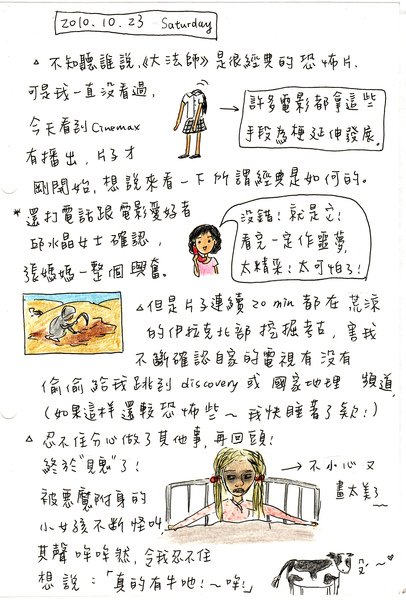 2010.10.23 Saturday
△ 不知聽誰說,《大法師》是很經典的恐怖片,
可是我一直沒看過,
今天看到Cinemax
有播出,片子才
剛開始,想說來看一下所謂經典是如何的。
→ 許多電影都拿這些
手段為梗延伸發展.
* 還打電話跟電影愛好者
邱水晶女士確認,
張媽媽一整個興奮.
沒錯!就是它!
看完一定作靈夢,
太精采!太可怕了!
△但是片子連續20min都在荒涼
的伊拉克北部挖掘考古,害我
不斷確認自家的電視有沒有
偷偷給我跳到discovery或國家地理頻道,
(如果這樣還較恐怖些~我快睡著了欸!)
△ 忍不住分心做了其他事,再回頭!
終於"見鬼"了!
被惡魔附身的
小女孩不斷怪叫,
其聲哞哞然,令我忍不住
想說:「真的有牛地!~哞!」
→ 不小心又
畫太美了~